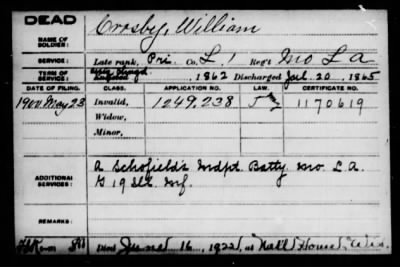 DEAD
NAME OF SOLDIER: Crosby, William
SERVICE: Late rank, Pri. Co. L, 1 Reg't Mo L A
TERM OF SERVICE: 1862 Discharged Jul. 20, 1865
DATE OF FILING. CLASS. APPLICATION NO. LAW. CERTIFICATE NO.
1900 May 23 Invalid, 1249,238 1170619
Widow,
Minor,
ADDITIONAL SERVICES: A Schofield's Indpt. Batty. Mo. L A.
G 19 Ill. Inf.
Died June 16, 1922, at Nat'l Home, Wis.